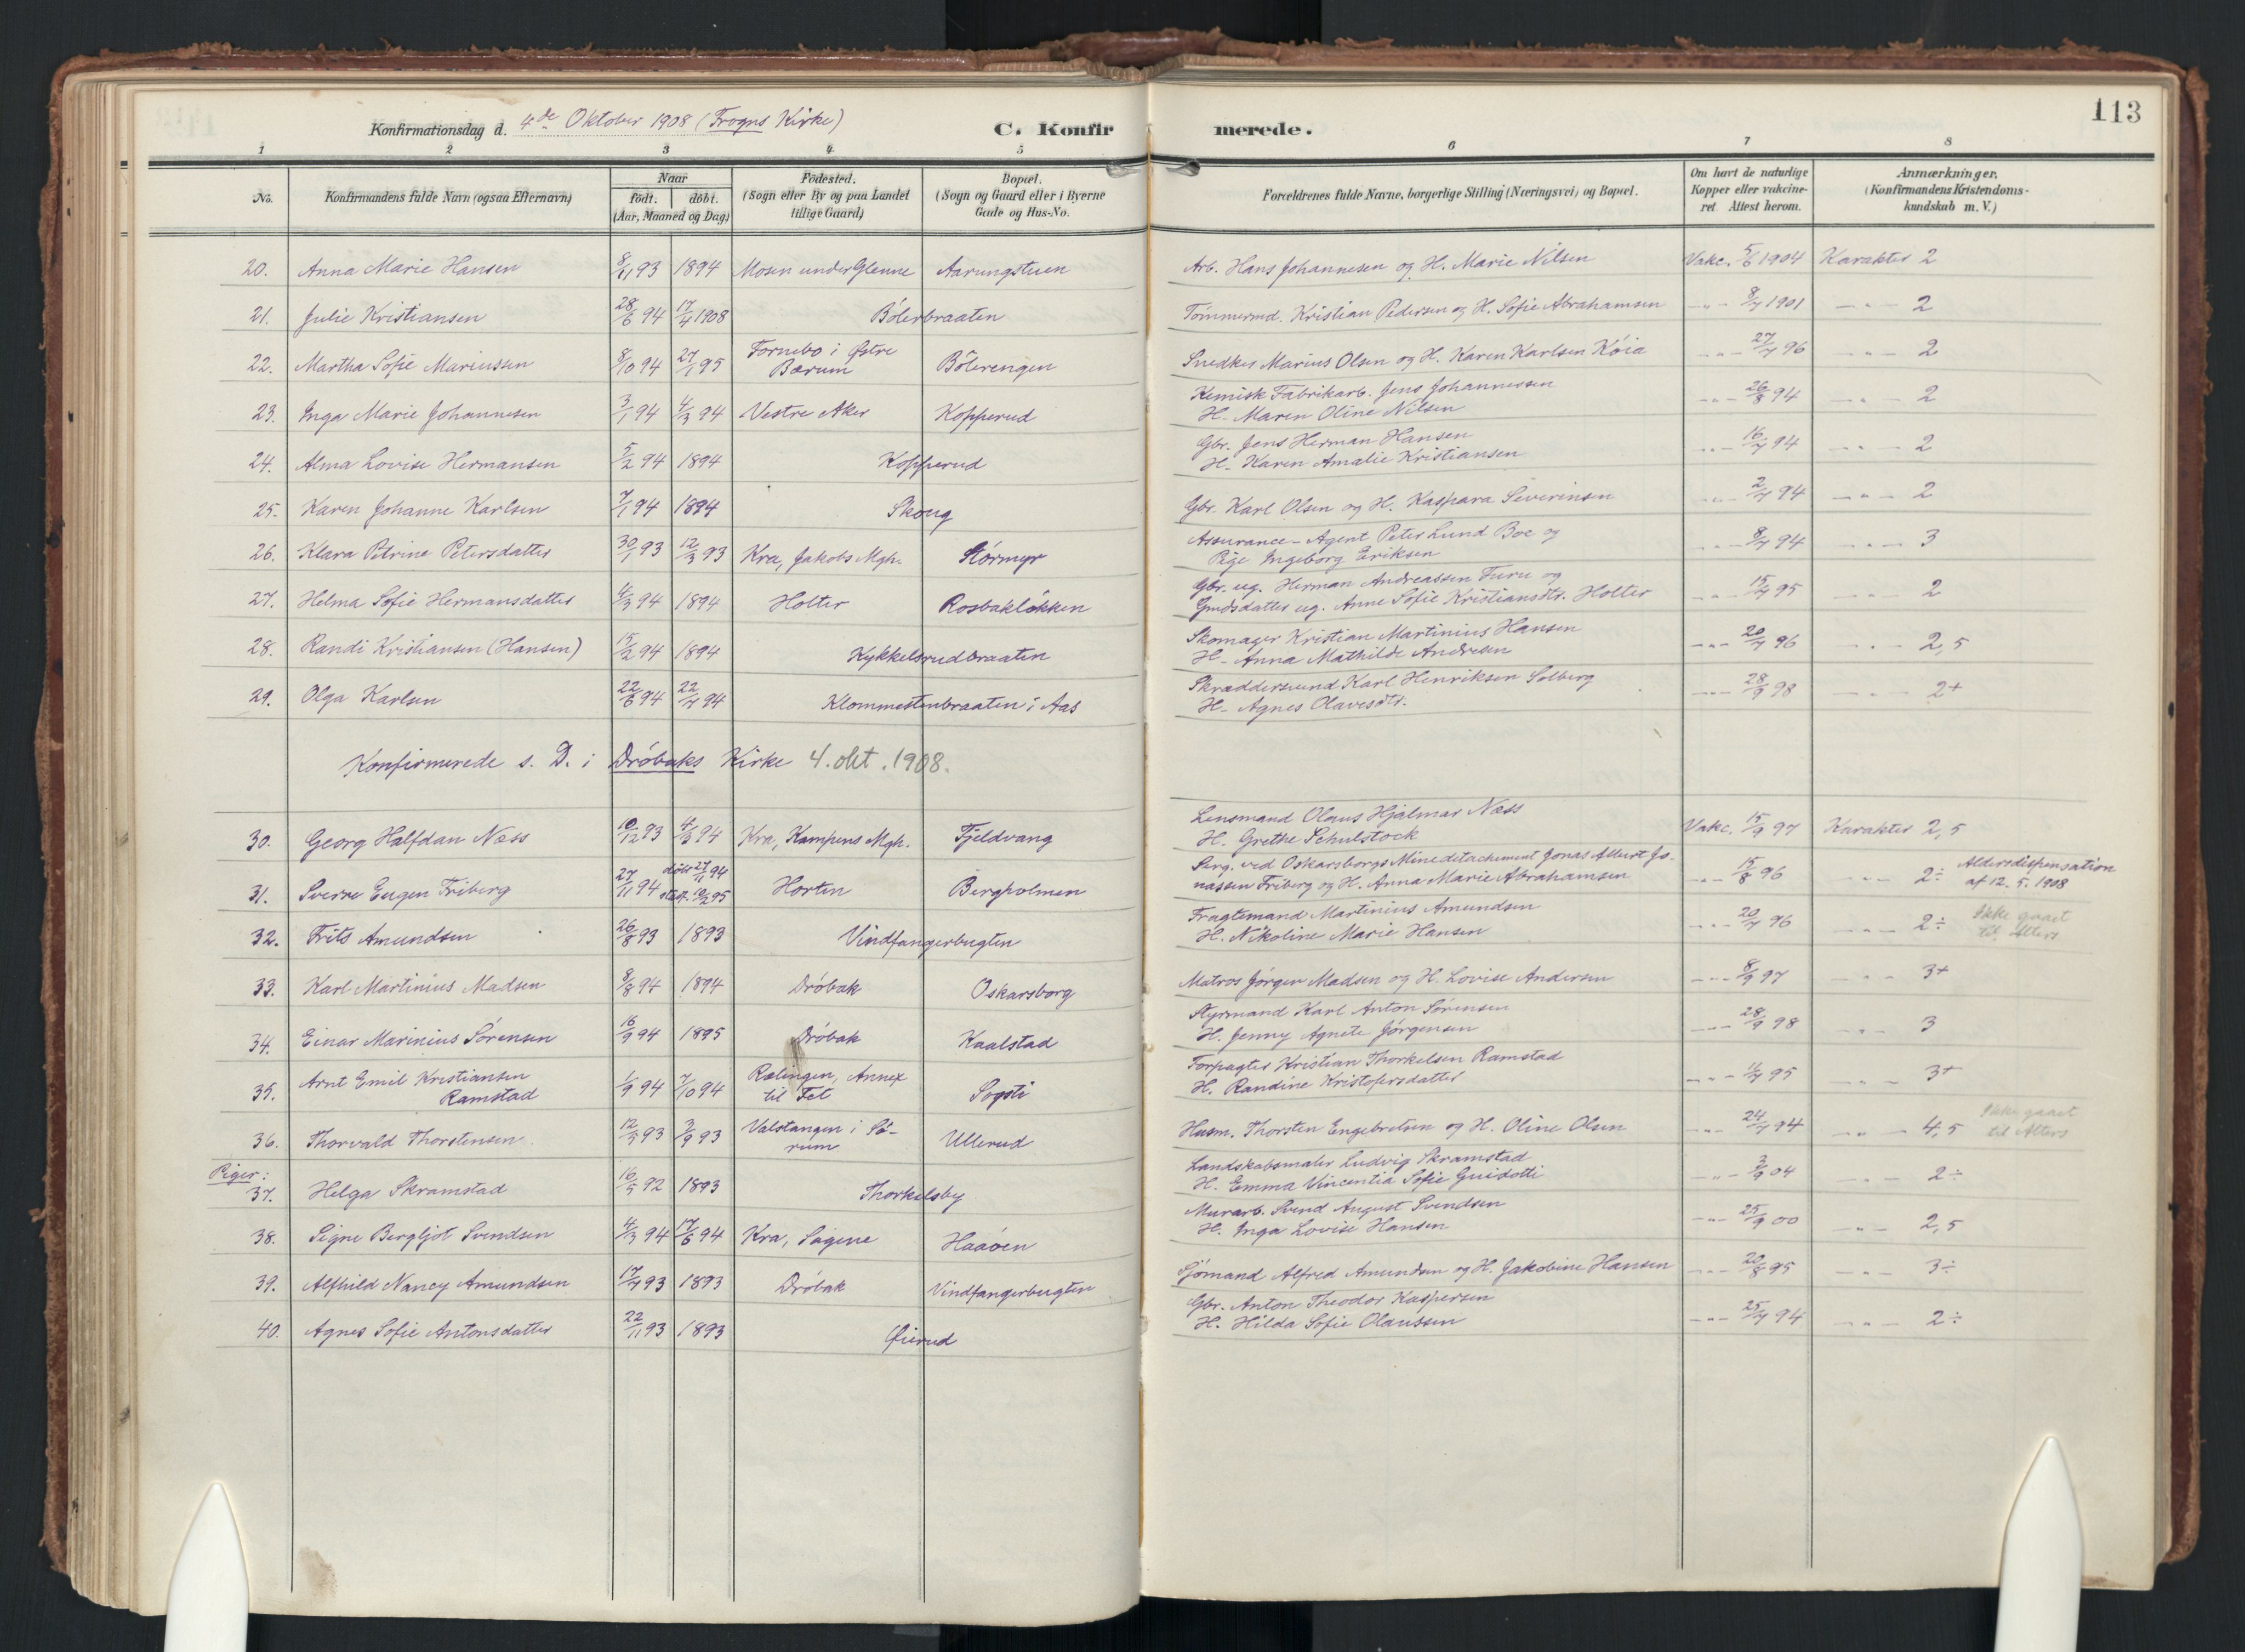 113
Konfirmationsdag d. 4de Oktober 1908 (Frogns Kirke)
C. Konfirmerede.
1 2 3 4 5 6 7 8
No.
Konfirmandens fulde Navn (ogsaa Efternavn)
Naar
født. døbt.
(Aar, Maaned og Dag)
Fødested.
(Sogn eller By og paa Landet
tillige Gaard)
Bopæl.
(Sogn og Gaard eller i Byerne
Gade og Hus-No.
Forældrenes fulde Navne, borgerlige Stilling (Næringsvei) og Bopæl.
Om havt de naturlige
Kopper eller vakcine-
ret. Attest herom.
Anmærkninger,
(Konfirmandens Kristendoms-
kundskab m. V.)
20. Anna Marie Hansen 8/11 93 1894 Mosen under Glenne Aarungstuen Arb. Hans Johannesen og H. Marie Nilsen Vakc. 5/6 1904 Karakter 2
21. Julie Kristiansen 28/6 94 17/4 1908 Bölerbraaten Tömmermd. Kristian Pedersen og H. Sofie Abrahamsen -"- 8/7 1901 -"- 2
22. Martha Sofie Mariussen 8/10 94 27/1 95 Fornebo i Østre
Bærum Bölerengen Snedker Marius Olsen og H. Karen Karlsen Köia -"- 27/7 96 -"- 2
23. Inga Marie Johannesen 3/1 94 4/3 94 Vestre Aker Kopperud Kemisk Fabrikarb. Jens Johannessen
H. Maren Oline Nilsen -"- 26/8 94 -"- 2
24. Alma Lovise Hermansen 5/2 94 1894 Kopperud Gbr. Jens Herman Hansen
H. Karen Amalie Kristiansen -"- 16/7 94 -"- 2
25. Karen Johanne Karlsen 7/1 94 1894 Skoug Gbr. Karl Olsen og H. Kaspara Severinsen -"- 2/7 94 -"- 2
26. Klara Petrine Petersdatter 30/1 93 12/3 93 Kra, Jakobs Mgh. Störmyr Assurance-Agent Peter Lund Boe og
Pige Ingeborg Eriksen -"- 8/7 94 -"- 3
27. Helma Sofie Hermansdatter 4/3 94 1894 Holter Rosbaklökken Gbr. ug. Herman Andreassen Furu og
Gmdsdatter ug. Anne Sofie Kristiansdtr. Holter -"- 15/7 95 -"- 2
28. Randi Kristiansen (Hansen) 15/2 94 1894 Kykkelsrudbraaten Skomager Kristian Martinius Hansen
H. Anna Mathilde Andresen -"- 20/7 96 -"- 2,5
29. Olga Karlsen 22/6 94 22/7 94 Klommestenbraaten i Aas Skræddersvend Karl Henriksen Solberg
H. Agnes Olavesdtr. -"- 28/9 98 -"- 2+
Konfirmerede s. D. i Dröbaks Kirke 4. okt. 1908.
30. Georg Halfdan Næss 10/12 93 4/3 94 Kra, Kampens Mgh. Fjeldvang Lensmand Olaus Hjalmar Næss
H. Grethe Schulstock Vakc. 15/9 97 Karakter 2,5
31. Sverre Eugen Friberg 27/11 94 døbt 27/11 94
stadf. 10/2 95 Horten Bergholmen Serg. ved Oskarsborgs Minedetachement Jonas Albert Jo-
nassen Friberg og H. Anna Marie Abrahamsen -"- 15/8 96 -"- 2÷ Aldersdispensation
af 12. 5. 1908
32. Frits Amundsen 26/8 93 1893 Vindfangerbugten Fragtemand Martinius Amundsen
H. Nikoline Marie Hansen -"- 20/7 96 -"- 2÷ Ikke gaaet
til Alters
33. Karl Martinius Madsen 8/8 94 1894 Dröbak Oskarsborg Matros Jörgen Madsen og H. Lovise Andersen -"- 8/9 97 -"- 3+
34. Einar Marinius Sörensen 16/9 94 1895 Dröbak Kaalstad Styrmand Karl Anton Sörensen
H. Jenny Agnete Jörgensen -"- 28/9 98 -"- 3
35. Arnt Emil Kristiansen
Ramstad 1/9 94 7/10 94 Rælingen, Annex
til Fet Sogsti Forpagter Kristian Thorkelsen Ramstad
H. Randine Kristofersdatter -"- 11/7 95 -"- 3+
36. Thorvald Thorstensen 12/5 93 3/9 93 Valstangen i Sö-
rum Ullerud Husm. Thorsten Engebretsen og H. Oline Olsen -"- 24/7 94 -"- 4,5 Ikke gaaet
til Alters
Piger:
37. Helga Skramstad 16/5 92 1893 Thorkelsby Landskabsmaler Ludvig Skramstad
H. Emma Vincentia Sofie Guidotti -"- 3/9 04 -"- 2÷
38. Signe Bergljot Svendsen 4/3 94 17/6 94 Kra, Sagene Haaöen Murarb. Svend August Svendsen
H. Inga Lovise Hansen -"- 25/9 00 -"- 2,5
39. Alfhild Nancy Amundsen 17/7 93 1893 Dröbak Vindfangerbugten Sjömand Alfred Amundsen og H. Jakobine Hansen -"- 20/8 95 -"- 3÷
40. Agnes Sofie Antonsdatter 22/11 93 1893 Øierud Gbr. Anton Theodor Kaspersen
H. Hilda Sofie Olaussen -"- 25/7 94 -"- 2÷